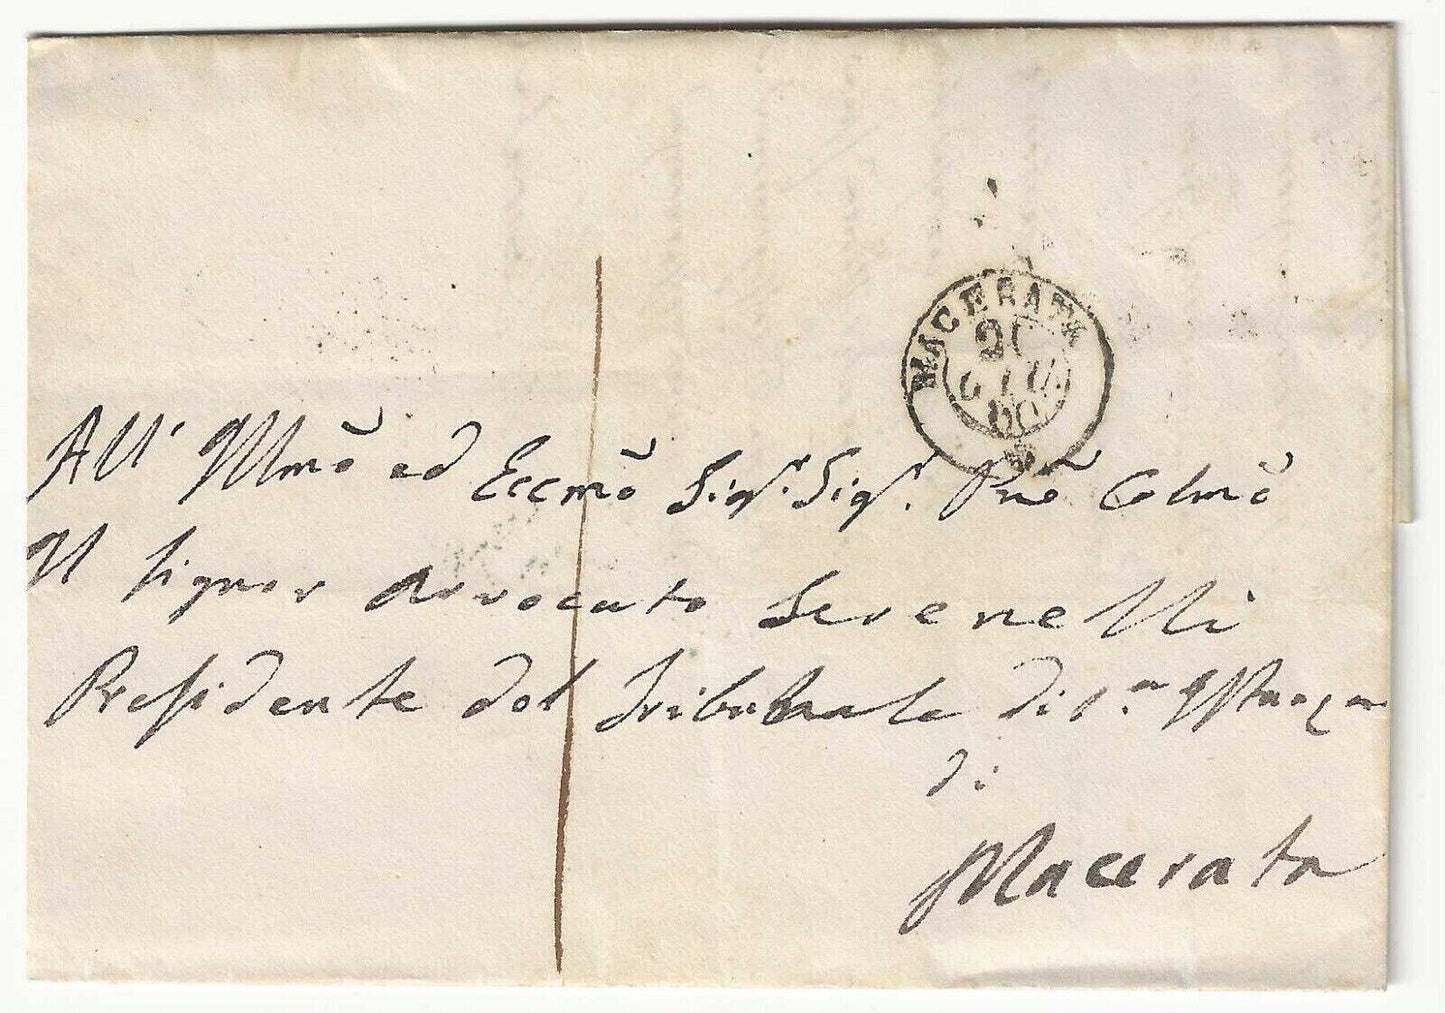 MACERATA
GIU
60
All' Illmõ ed Eccmõ Sigr. Sigr. Pñe Colmõ
Il Signor Avvocato Serenelli
Presidente del Tribunale di Pma Istanza
di
Macerata